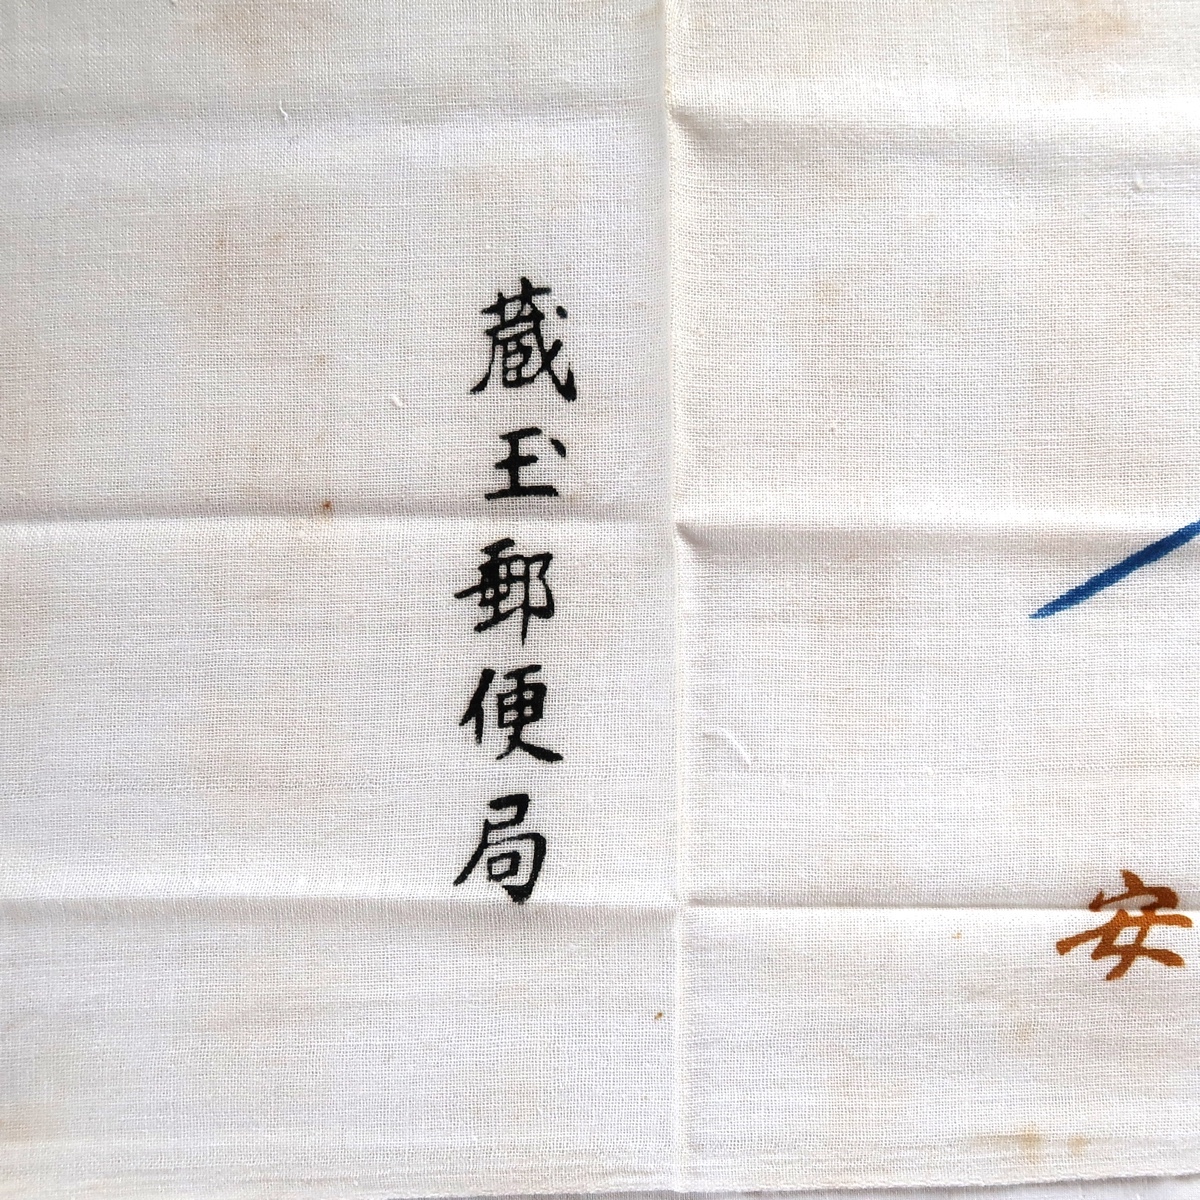 安
蔵玉郵便局